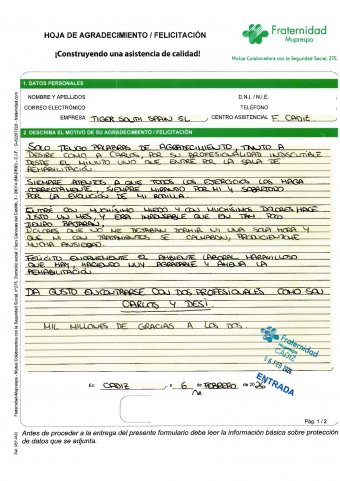 HOJA DE AGRADECIMIENTO / FELICITACIÓN
Fraternidad
Muprespa
¡Construyendo una asistencia de calidad!
Mutua Colaboradora con la Seguridad Social, 275.
1. DATOS PERSONALES
NOMBRE Y APELLIDOS
D.N.I. / N.I.E.
CORREO ELECTRÓNICO
TELÉFONO
EMPRESA TIGER SOUTH SPAIN SL
CENTRO ASISTENCIAL F. CADIZ
2. DESCRIBA EL MOTIVO DE SU AGRADECIMIENTO / FELICITACIÓN
SOLO TENGO PALABRAS DE AGRADECIMIENTO, TANTO A
DESIRE COMO A CARLOS, POR SU PROFESIONALIDAD INDISCUTIBLE
DESDE EL MINUTO UNO QUE ENTRE POR LA SALA DE
REHABILITACIÓN.
SIEMPRE ATENTOS A QUE TODOS LOS EJERCICIOS LOS HAGA
CORRECTAMENTE, SIEMPRE MIRANDO POR MI Y SOBRETODO
POR LA EVOLUCIÓN DE MI RODILLA.
ENTRÉ CON MUCHÍSIMO MIEDO Y CON MUCHÍSIMOS DOLORES HACE
JUSTO UN MES, Y ERA IMPENSABLE QUE EN TAN POCO
TIEMPO BAJARAN,
DOLORES QUE NO ME DEJABAN DORMIR NI UNA SOLA HORA Y
QUE NI CON TRATAMIENTOS SE CALMABAN, PRODUCIENDOME
MUCHA ANSIEDAD.
FELICITO ENORMEMENTE EL AMBIENTE LABORAL MARAVILLOSO
QUE HAY, HACIENDO MUY AGRADABLE Y AMENA LA
REHABILITACIÓN.
DA GUSTO ENCONTRARSE CON DOS PROFESIONALES COMO SON
CARLOS Y DESI.
MIL MILLONES DE GRACIAS A LOS DOS.
Fraternidad
Muprespa
CADIZ
06 FEB 2026
ENTRADA
En CADIZ, a 6 de FEBRERO de 2026
Pág. 1 / 2
Antes de proceder a la entrega del presente formulario debe leer la información básica sobre protección
de datos que se adjunta.